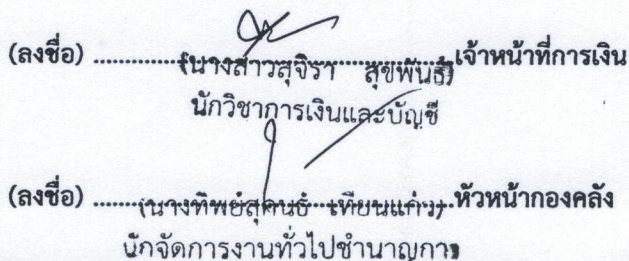 (ลงชื่อ) ................................................ เจ้าหน้าที่การเงิน
(นางสาวสุจิรา สุขพันธ์)
นักวิชาการเงินและบัญชี
(ลงชื่อ) ................................................ หัวหน้ากองคลัง
(นางทิพย์สุคนธ์ เทียนแก้ว)
นักจัดการงานทั่วไปชำนาญการ